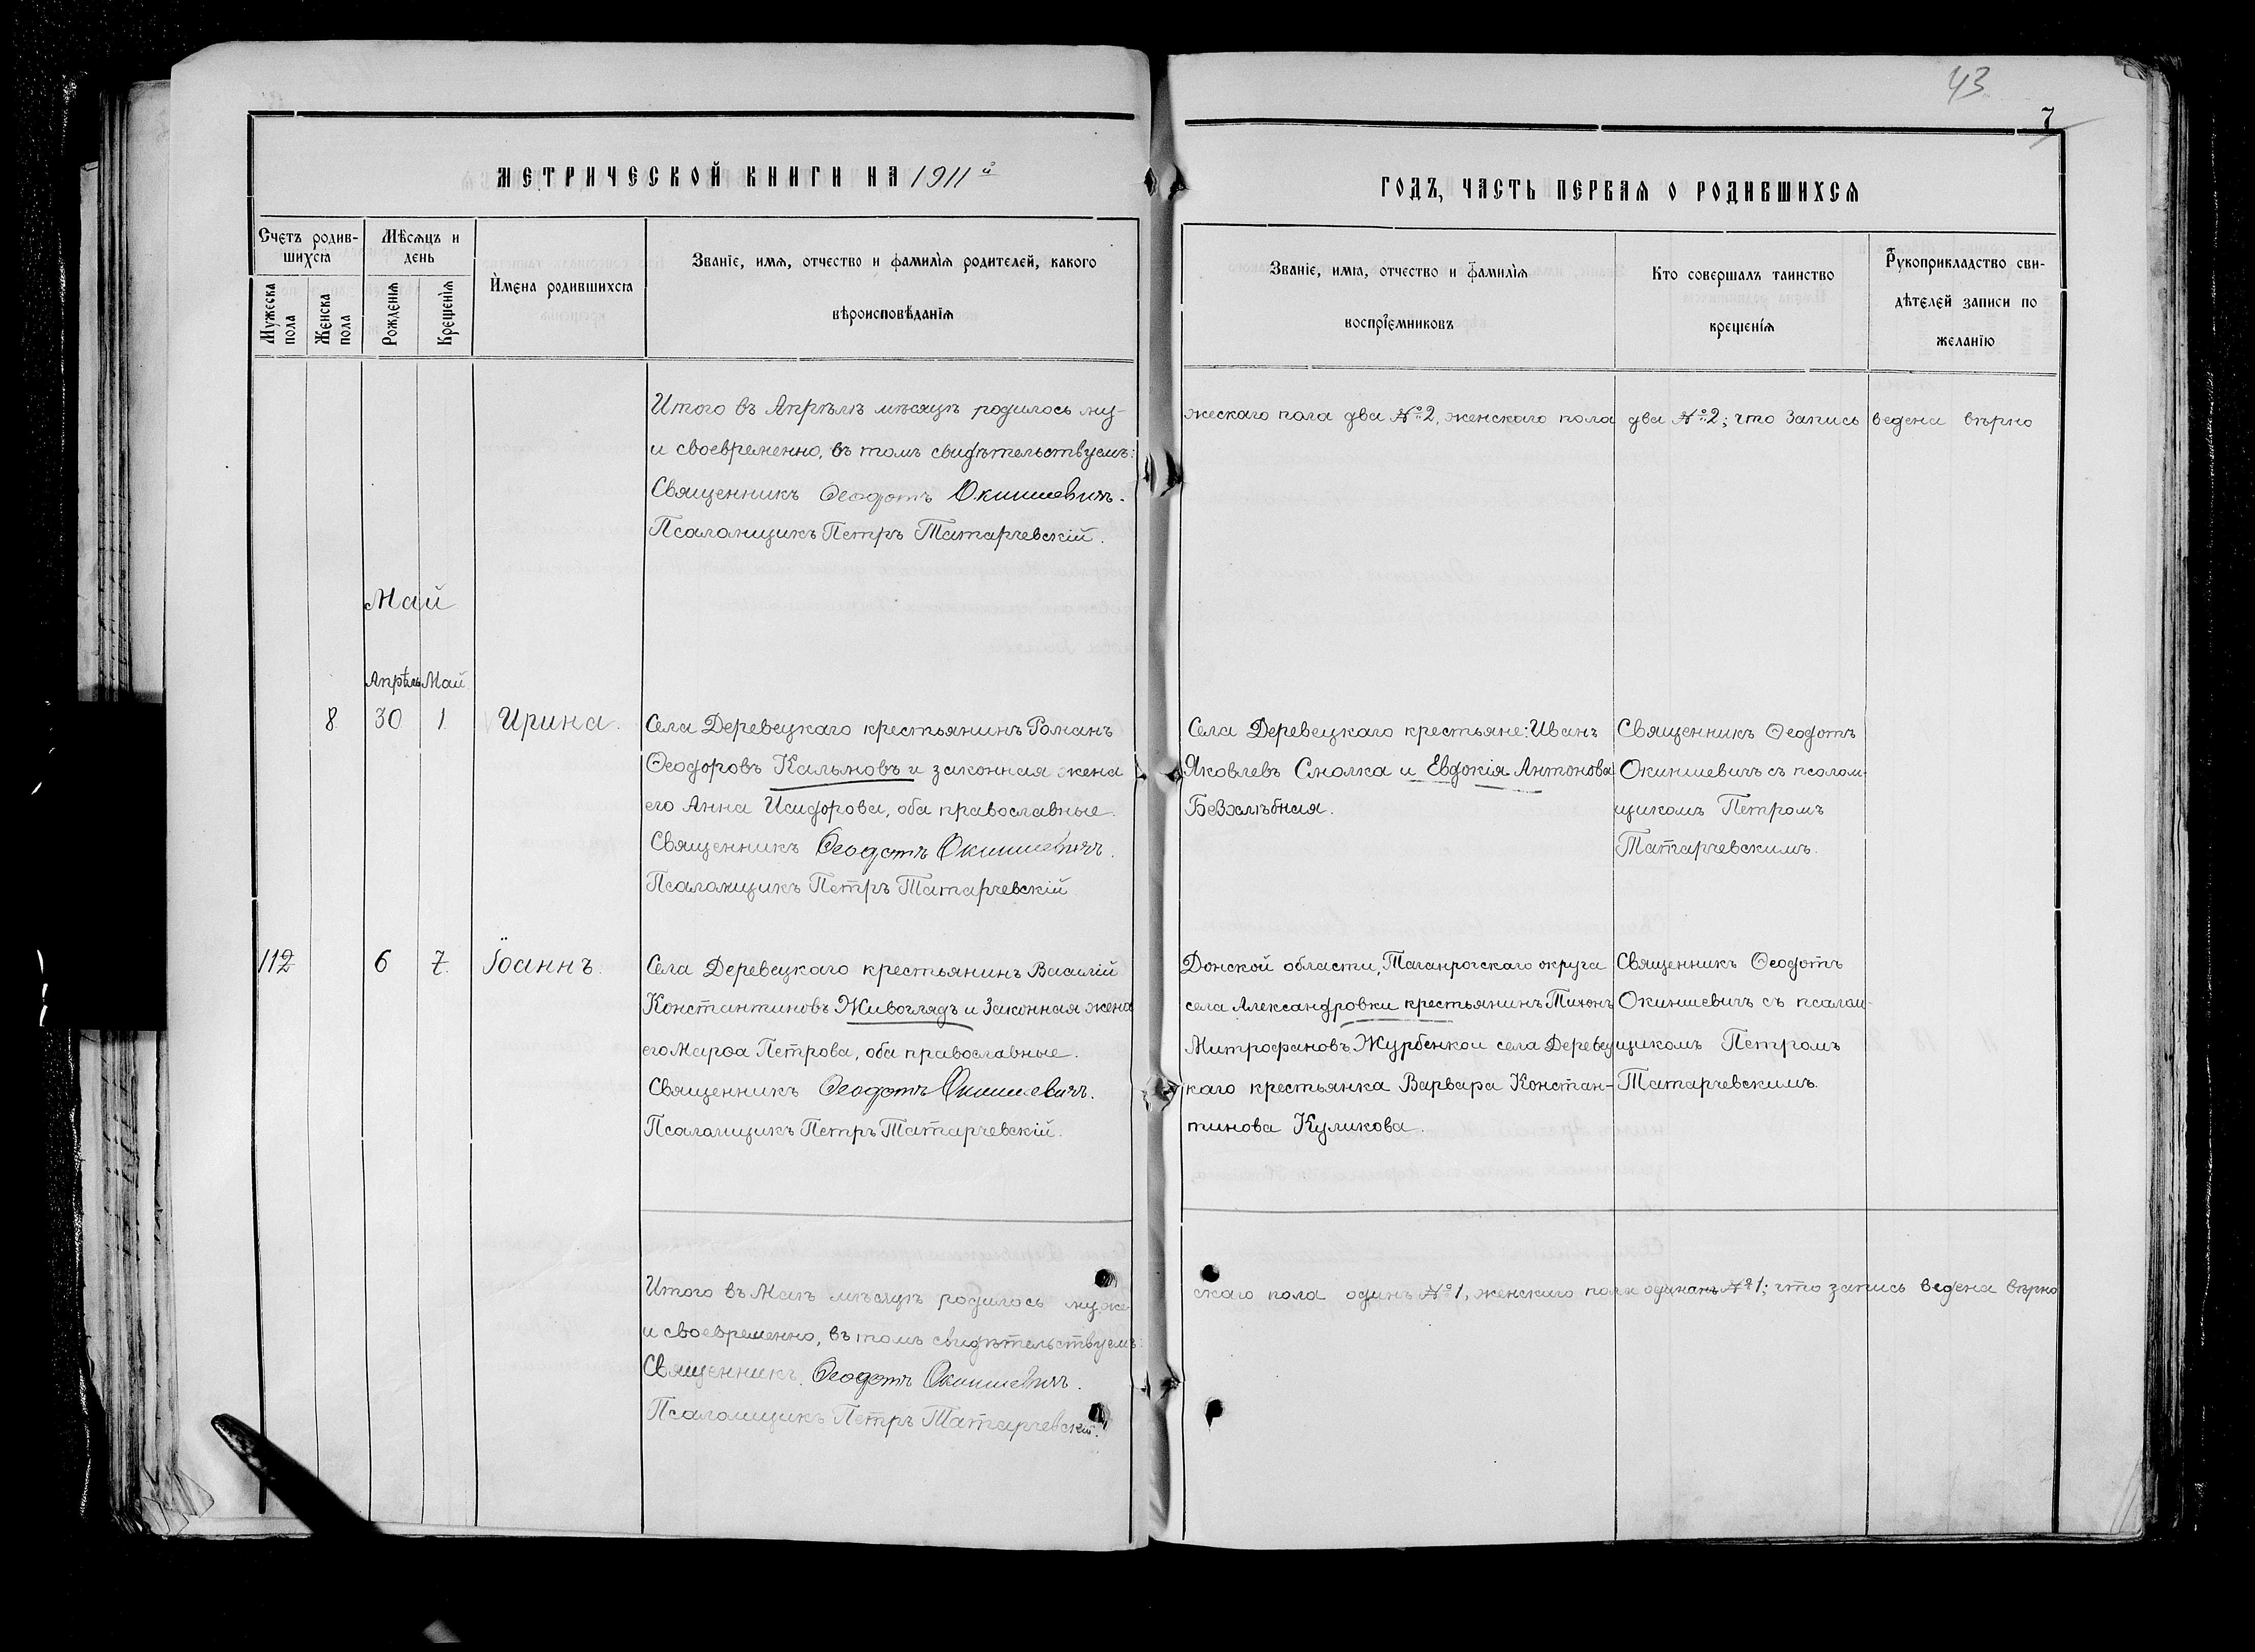 43
7
МЕТРИЧЕСКОЙ КНИГИ НА 1911й
ГОДЪ, ЧАСТЬ ПЕРВАЯ О РОДИВШИХСЯ
Счетъ родив-
шихся
Мѣсяцъ и
день
Мужеска
пола
Женска
пола
Рожденія
Крещенія
Имена родившихся
Званіе, имя, отчество и фамилія родителей, какого
вѣроисповѣданія
Званіе, имя, отчество и фамилія
воспріемниковъ
Кто совершалъ таинство
крещенія
Рукоприкладство сви-
дѣтелей записи по
желанію
Итого въ Апрѣлѣ мѣсяцѣ родилось му-
жескаго пола два №2, женскаго пола два №2; что запись ведена вѣрно
и своевременно, въ томъ свидѣтельствуемъ:
Священникъ Ѳеодотъ Окиншевичъ.
Псаломщикъ Петръ Татарчевскій.
Май
Апрѣль Май
8 30 1 Ирина.
Села Деревецкаго крестьянинъ Романъ
Ѳеодоровъ Кальновъ и законная жена
его Анна Исидорова, оба православные.
Священникъ Ѳеодотъ Окиншевичъ.
Псаломщикъ Петръ Татарчевскій
Села Деревецкаго крестьяне: Иванъ
Яковлевъ Смолка и Евдокія Антонова
Безхлѣбная.
Священникъ Ѳеодотъ
Окиншевичъ съ псалом-
щикомъ Петромъ
Татарчевскимъ.
112 6 7. Іоаннъ.
Села Деревецкаго крестьянинъ Василій
Константиновъ Живоглядъ и законная жена
его Марѳа Петрова, оба православные.
Священникъ Ѳеодотъ Окиншевичъ.
Псаломщикъ Петръ Татарчевскій.
Донской области, Таганрогскаго округа
села Александровки крестьянинъ Тихонъ
Митрофановъ Журбенко и села Деревец
каго крестьянка Варвара Констан-
тинова Куликова.
Священникъ Ѳеодотъ
Окиншевичъ съ псалом-
щикомъ Петромъ
Татарчевскимъ.
Итого въ Маѣ мѣсяцѣ родилось муже
скаго пола одинъ №1, женскаго пола одинъ №1; что запись ведена вѣрно
и своевременно, въ томъ свидѣтельствуемъ:
Священникъ Ѳеодотъ Окиншевичъ.
Псаломщикъ Петръ Татарчевскій.